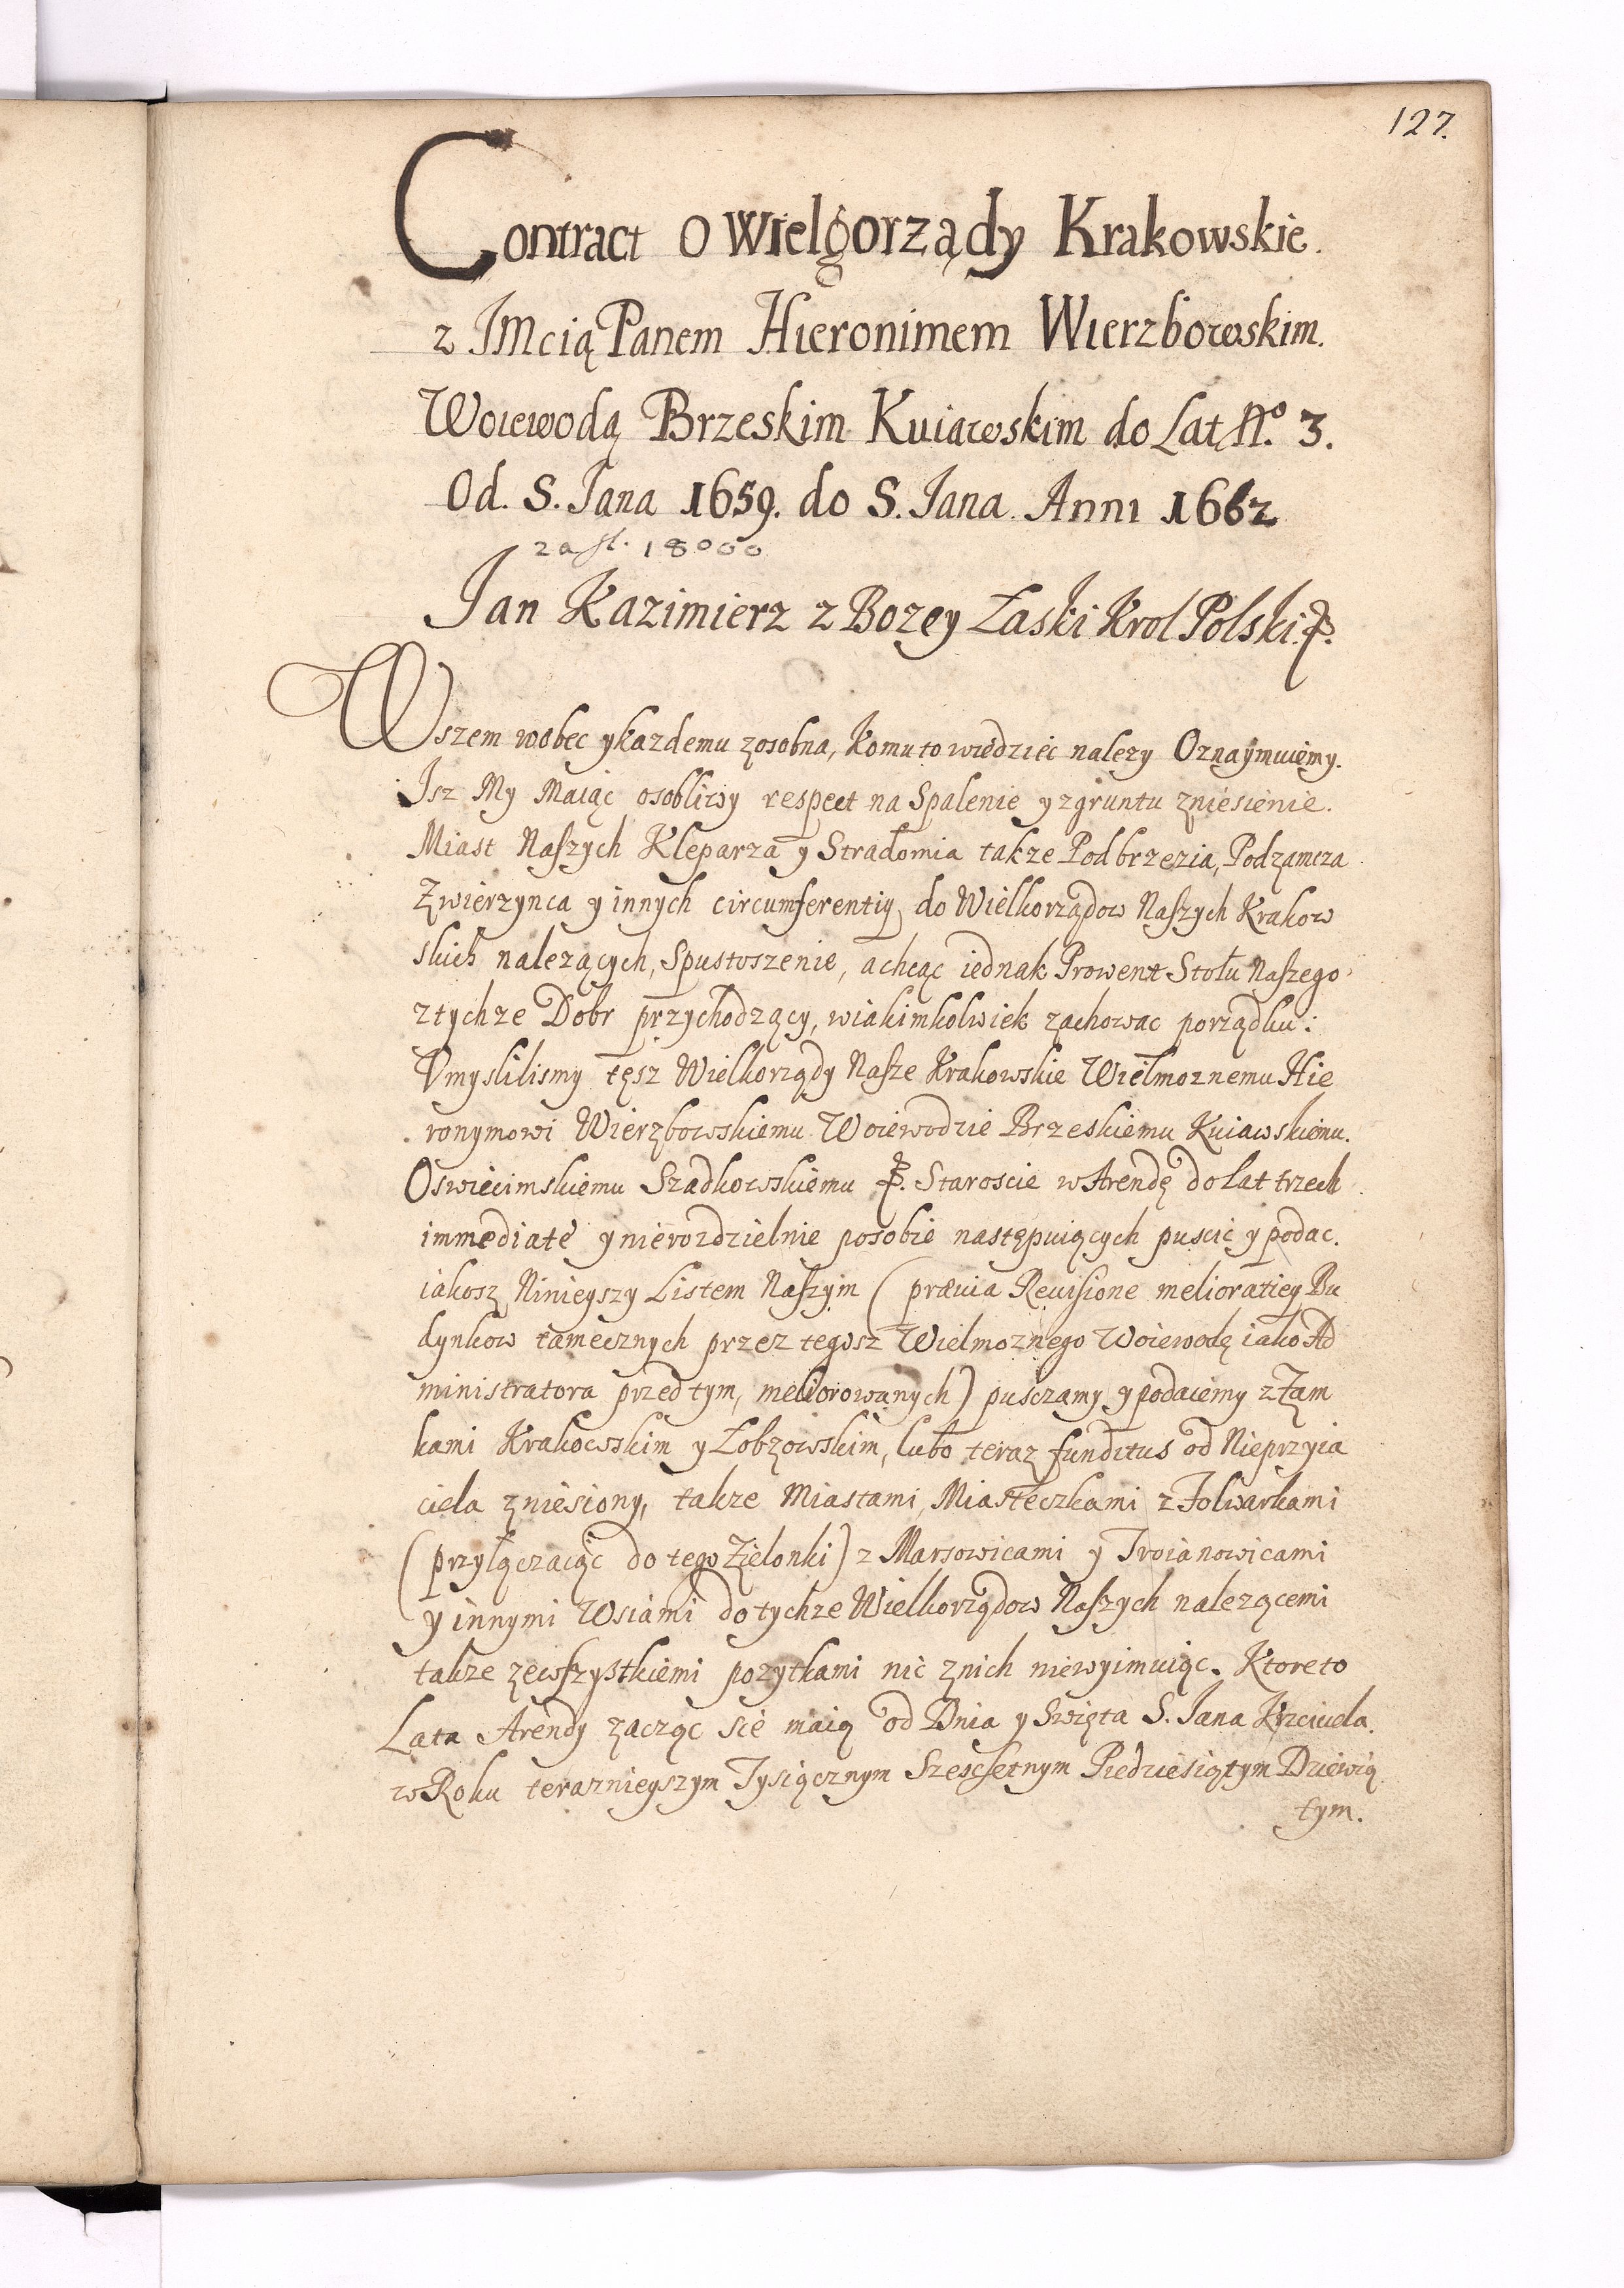 127.
Contract o Wielgorządy Krakowskie.
z JMcią Panem Hieronimem Wierzbowskim.
Woiewodą Brzeskim Kuiawskim do Lat No. 3.
Od. S. Jana 1659. do S. Jana. Anni 1662
za fl. 18000
Jan Kazimierz z Bozey Łaski Krol Polski.
Wszem wobec y kazdemu zosobna, komu to wiedziec nalezy Oznaymuiemy.
Jsz My Maiąc osobliwy respect na Spalenie y zgruntu zniesienie.
Miast Naszych Kleparza y Stradomia takze Podbrzezia, Podzamcza
Zwierzynca y innych circumferentiy do Wielkorządow Naszych Krakow
skich nalezących, Spustoszenie, a chcąc iednak Prowent Stołu Naszego
z tychze Dobr przychodzący, wiakimkolwiek zachowac porządku:
Vmyslilismy tęsz Wielkorządy Nasze Krakowskie Wielmoznemu Hie
ronymowi Wierzbowskiemu Woiewodzie Brzeskiemu Kuiawskiemu.
Oswiecimskiemu Szadkowskiemu Staroscie w Arendę do lat trzech
immediate y nierozdzielnie posobie następuiących puscic y podac.
iakosz Ninieyszy Listem Naszym (prævia Reuisione melioratiey Bu
dynkow tamecznych przez tegosz Wielmoznego Woiewodę iako Ad
ministratora przed tym, meliorowanych) pusczamy y podaiemy z Zam
kami Krakowskim y Łobzowskim, lubo teraz funditus od Nieprzyia
ciela zniesiony, takze Miastami, Miasteczkami z Folwarkami
(przyłączaiąc do tego Zielonki) z Marsowicami y Troianowicami
y innymi Wsiami do tychze Wielkorządow Naszych nalezącemi
takze zewszystkiemi pozytkami nic znich niewyimuiąc. Ktore to
Lata Arendy zacząc sie maią od Dnia y Swięta S. Jana Krzciciela.
w Roku teraznieyszym Tysiącznym Szescsetnym Piedziesiątym Dziewią
tym.